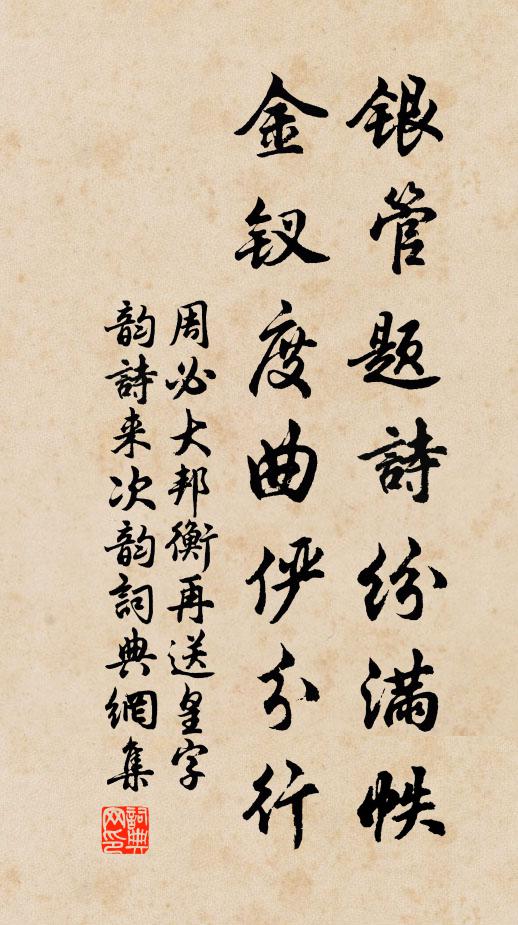 银管题詩纷滿帙
金钗度曲俨分行
周必大邦衡再送皇字
韵詩来次韵詞典網集
詞典网印